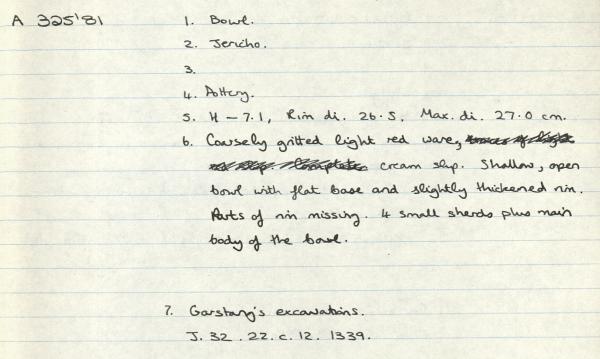 A 325'81
1. Bowl.
2. Jericho.
3.
4. Pottery.
5. H – 7.1, Rim di. 26.5, Max. di. 27.0 cm.
6. Coarsely gritted light red ware,
cream slip. Shallow, open
bowl with flat base and slightly thickened rim.
Parts of rim missing. 4 small sherds plus main
body of the bowl.
7. Garstang's excavations.
J. 32. 22. c. 12. 1339.